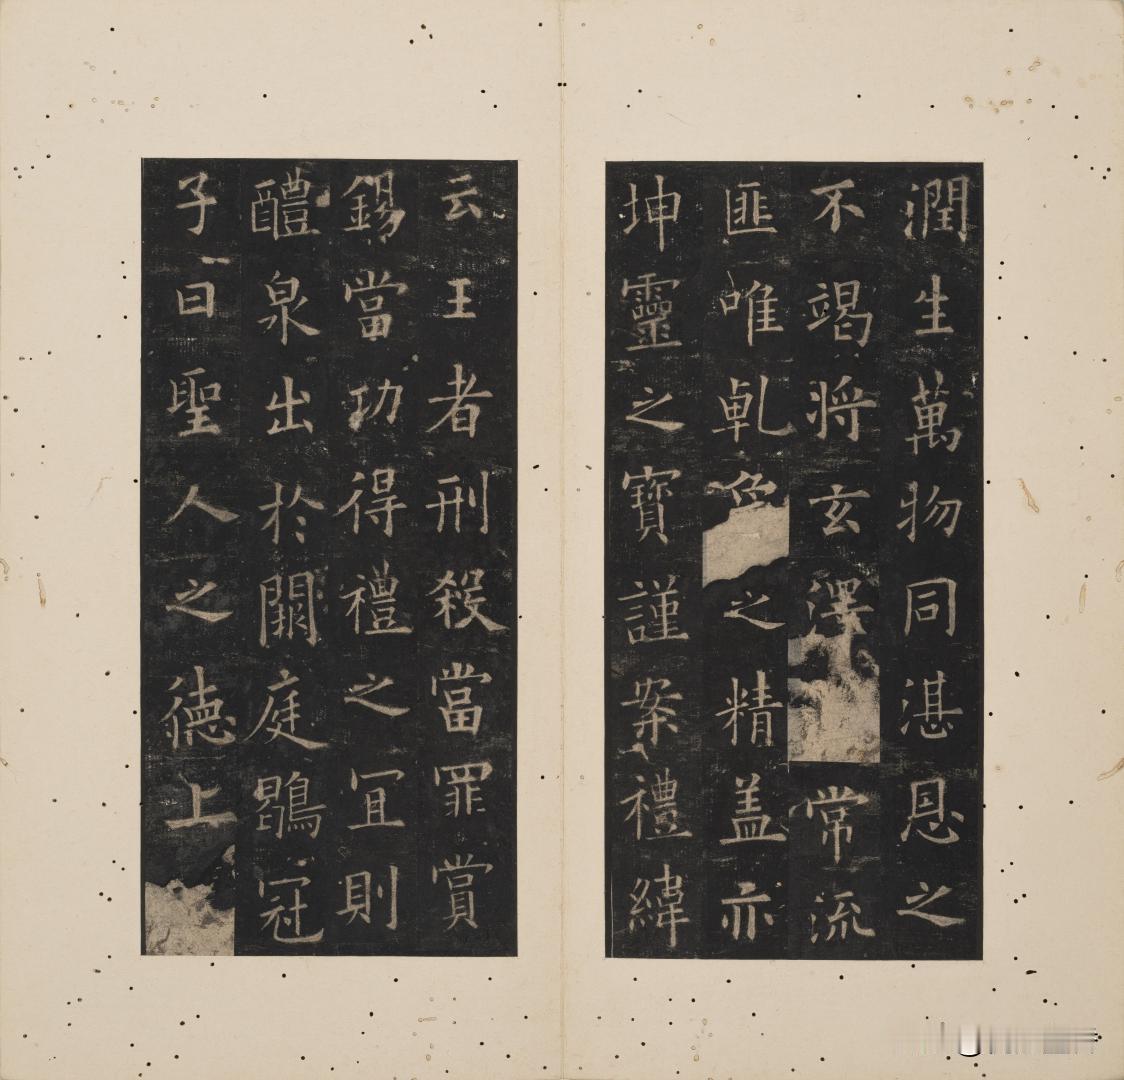 潤生萬物同湛恩之
不竭將玄澤常流
匪唯乹之精盖亦
坤靈之寶謹案禮緯
云王者刑殺當罪賞
錫當功得禮之冝則
醴泉出於闕庭鶡冠
子曰聖人之德上